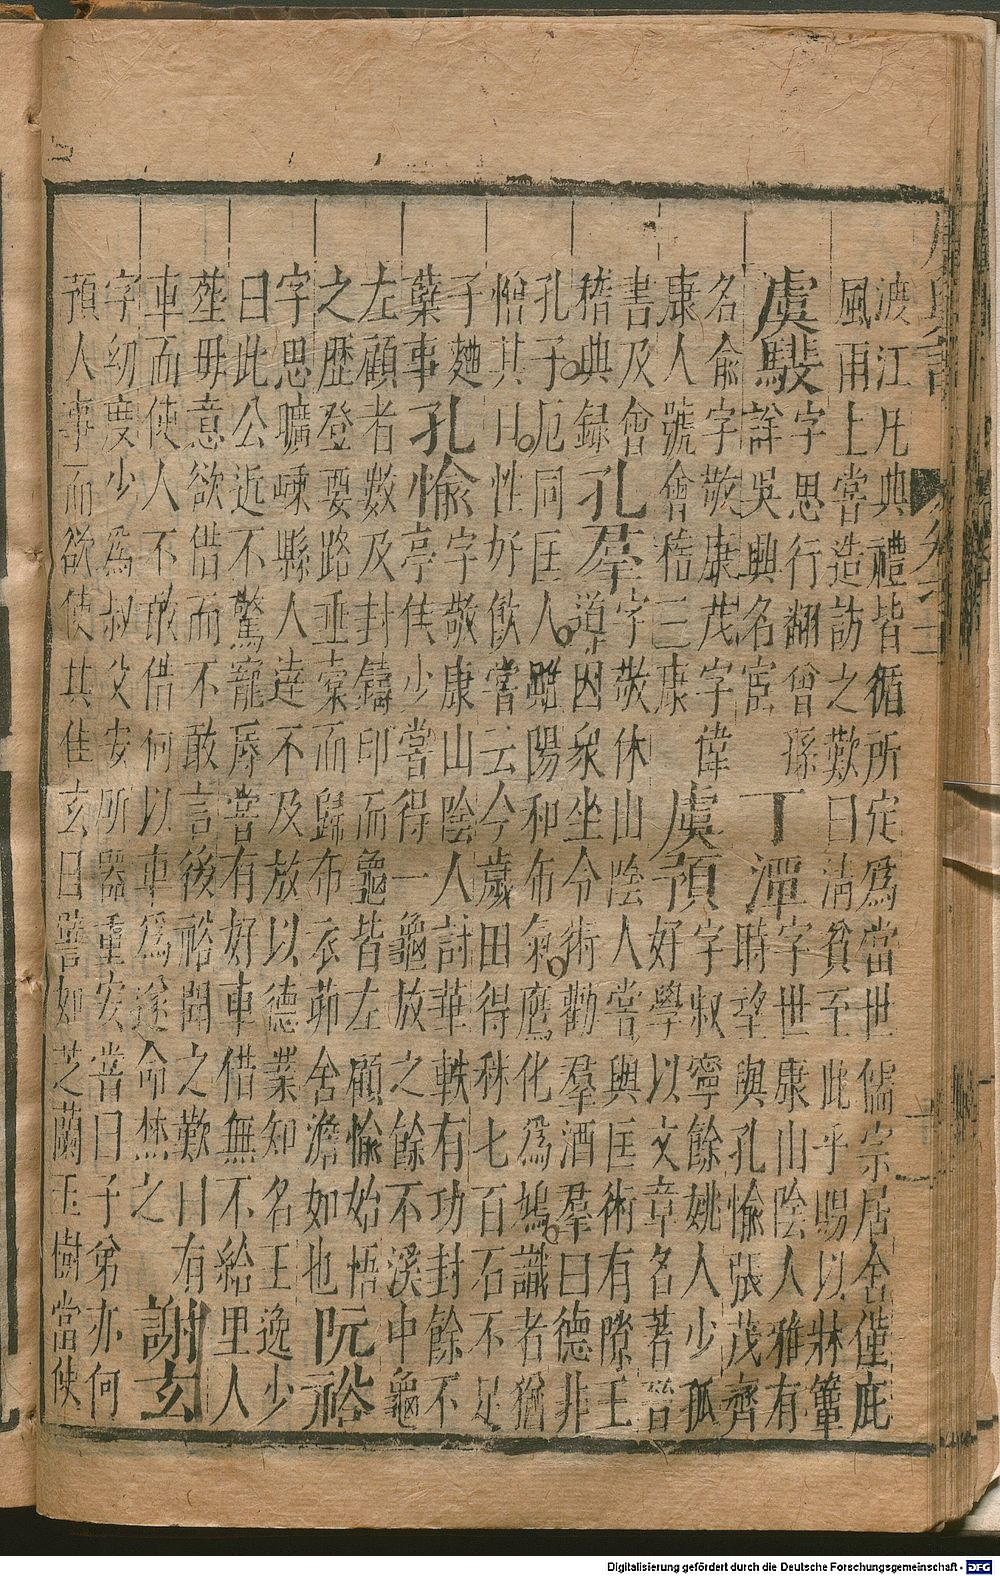 渡江凡典禮皆循所定為當世儒宗居舍僅庇
風雨上嘗造訪之歎曰清貧至此乎賜以牀簟
虞 字思行翻曾孫
吳興名宦
丁潭 字世康山陰人雅有
時望與孔愉張茂齊
名俞字敬康茂字偉
康人號會稽三康
虞預 字叔寧餘姚人少孤
好學以文章名著晉
書及會
稽典錄
孔羣 字敬休山陰人嘗與匡術有隙王
導因衆坐令術勸羣酒羣曰德非
孔子厄同匡人雖陽和布氣鷹化為鳩識者猶
憎其目性好飲嘗云今歲田得秫七百石不足
子麯
蘖事
孔愉 字敬康山陰人討華軼有功封餘不
亭侯少嘗得一龜放之餘不溪中龜
左顧者數及封鑄印而龜皆左顧愉始悟
之歷登要路垂橐而歸布衣茆舍澹如也
阮裕
字思曠嵊縣人達不及放以德業知名王逸少
曰此公近不驚寵辱嘗有好車借無不給里人
塟毋意欲借而不敢言後裕聞之歎曰有
車而使人不敢借何以車為遂命焚之
謝玄
字幼度少為叔父安所器重安嘗曰子弟亦何
預人事而欲使其佳玄曰譬如芝蘭玉樹當使
Digitalisierung gefördert durch die Deutsche Forschungsgemeinschaft - DFG